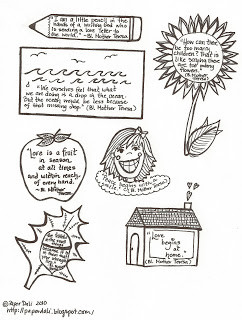 "I am a little pencil in the
hands of a writing God who
is sending a love letter to
the world." -Bl. Mother Teresa
"How can there
be too many
children? That is
like saying there
are too many
flowers."
(Bl. Mother
Teresa)
"We ourselves feel that what
we are doing is a drop in the ocean.
But the ocean would be less because
of that missing drop." (Bl. Mother Teresa)
"Love is a fruit
in season
at all times
and within reach
of every hand.
-Bl. Mother
Teresa
"Peace begins with a
smile."
-Bl. Mother Teresa
"Love
begins
at
home."
(Bl. Mother Teresa)
©Paper Dali 2010
http://paperdali.blogspot.com/